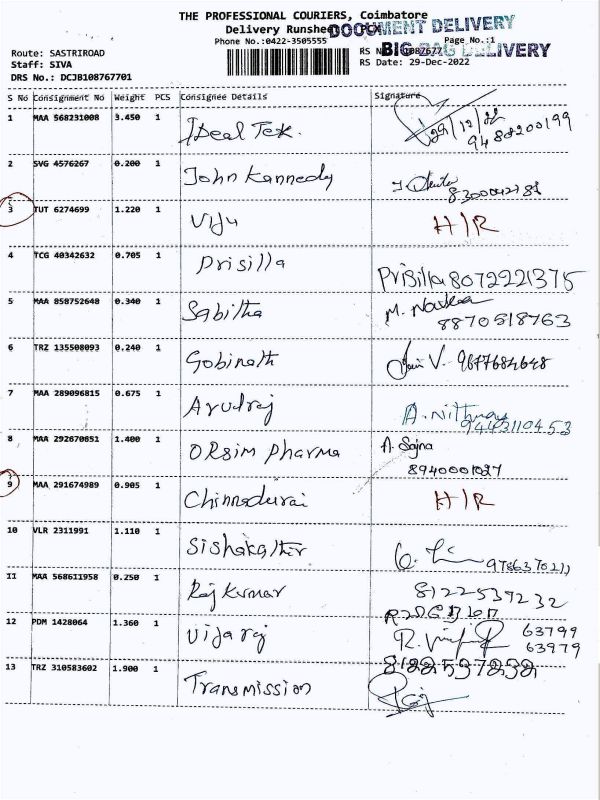 THE PROFESSIONAL COURIERS, Coimbatore
Delivery Runsheet DOCUMENT DELIVERY
Phone No.:0422-3505555 Page No.:1
Route: SASTRIROAD BIG BAG DELIVERY
Staff: SIVA RS Date: 29-Dec-2022
DRS No.: DCJB108767701
S No Consignment No Weight PCS Consignee Details Signature
1 MAA 568231008 3.450 1 IDeal Tek. 29/12/22
9488200199
2 SVG 4576267 0.200 1 John Kannedy
3 TUT 6274699 1.220 1 Viju H/R
4 TCG 40342632 0.705 1 Prisilla Prisilla 8072221375
5 MAA 858752648 0.340 1 Sabitha M.
8870518763
6 TRZ 135508093 0.240 1 Gobinath V. 9677684648
7 MAA 289096815 0.675 1 Arulraj A.
8 MAA 292670851 1.400 1 ORSim Pharma A. Sajna
8940001027
9 MAA 291674989 0.905 1 Chinnadurai H/R
10 VLR 2311991 1.110 1
11 MAA 568611958 0.250 1 Raj Kumar 8122537232
12 PDM 1428064 1.360 1 Vijaraj 63799
63979
13 TRZ 310583602 1.900 1 Transmission 8122537232